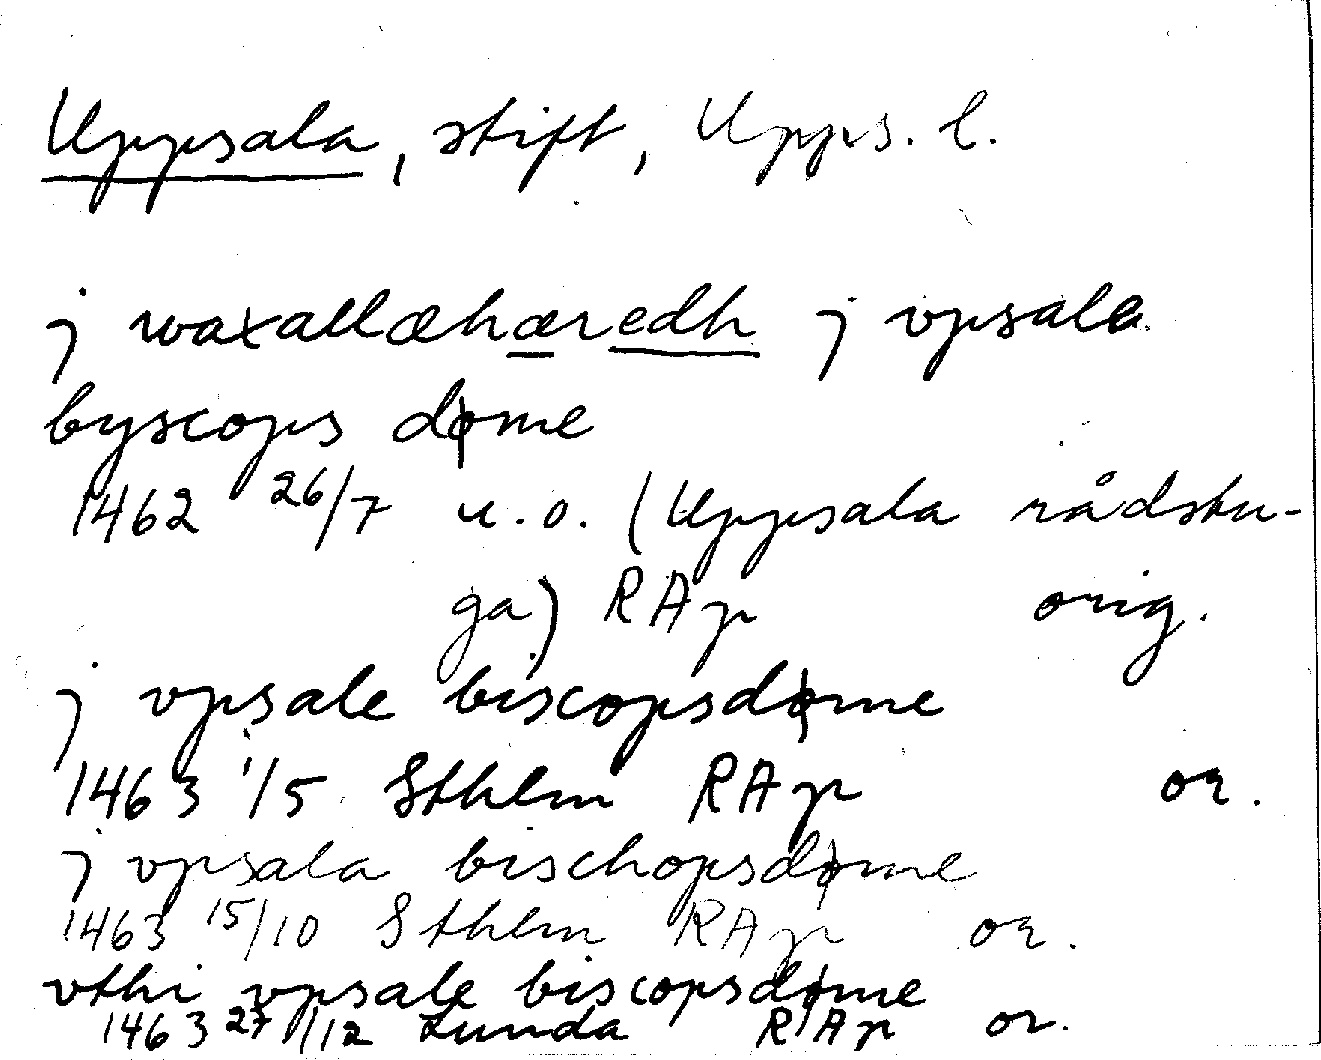 Uppsala, stift, Upps. l.
j waxallæhæredh j vpsala
byscops døme
1462 26/7 u.o. (Uppsala rådstu-
ga) RAp orig.
j vpsale biscopsdøme
1463 1/5 Sthlm RAp or.
j vpsala bischopsdøme
1463 15/10 Sthlm RAp or.
vthi vpsale biscopsdøme
1463 27/12 Lunda RAp or.